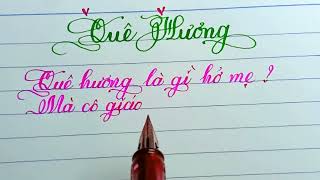 Quê Hương
Quê hương là gì hở mẹ ?
Mà cô giáo